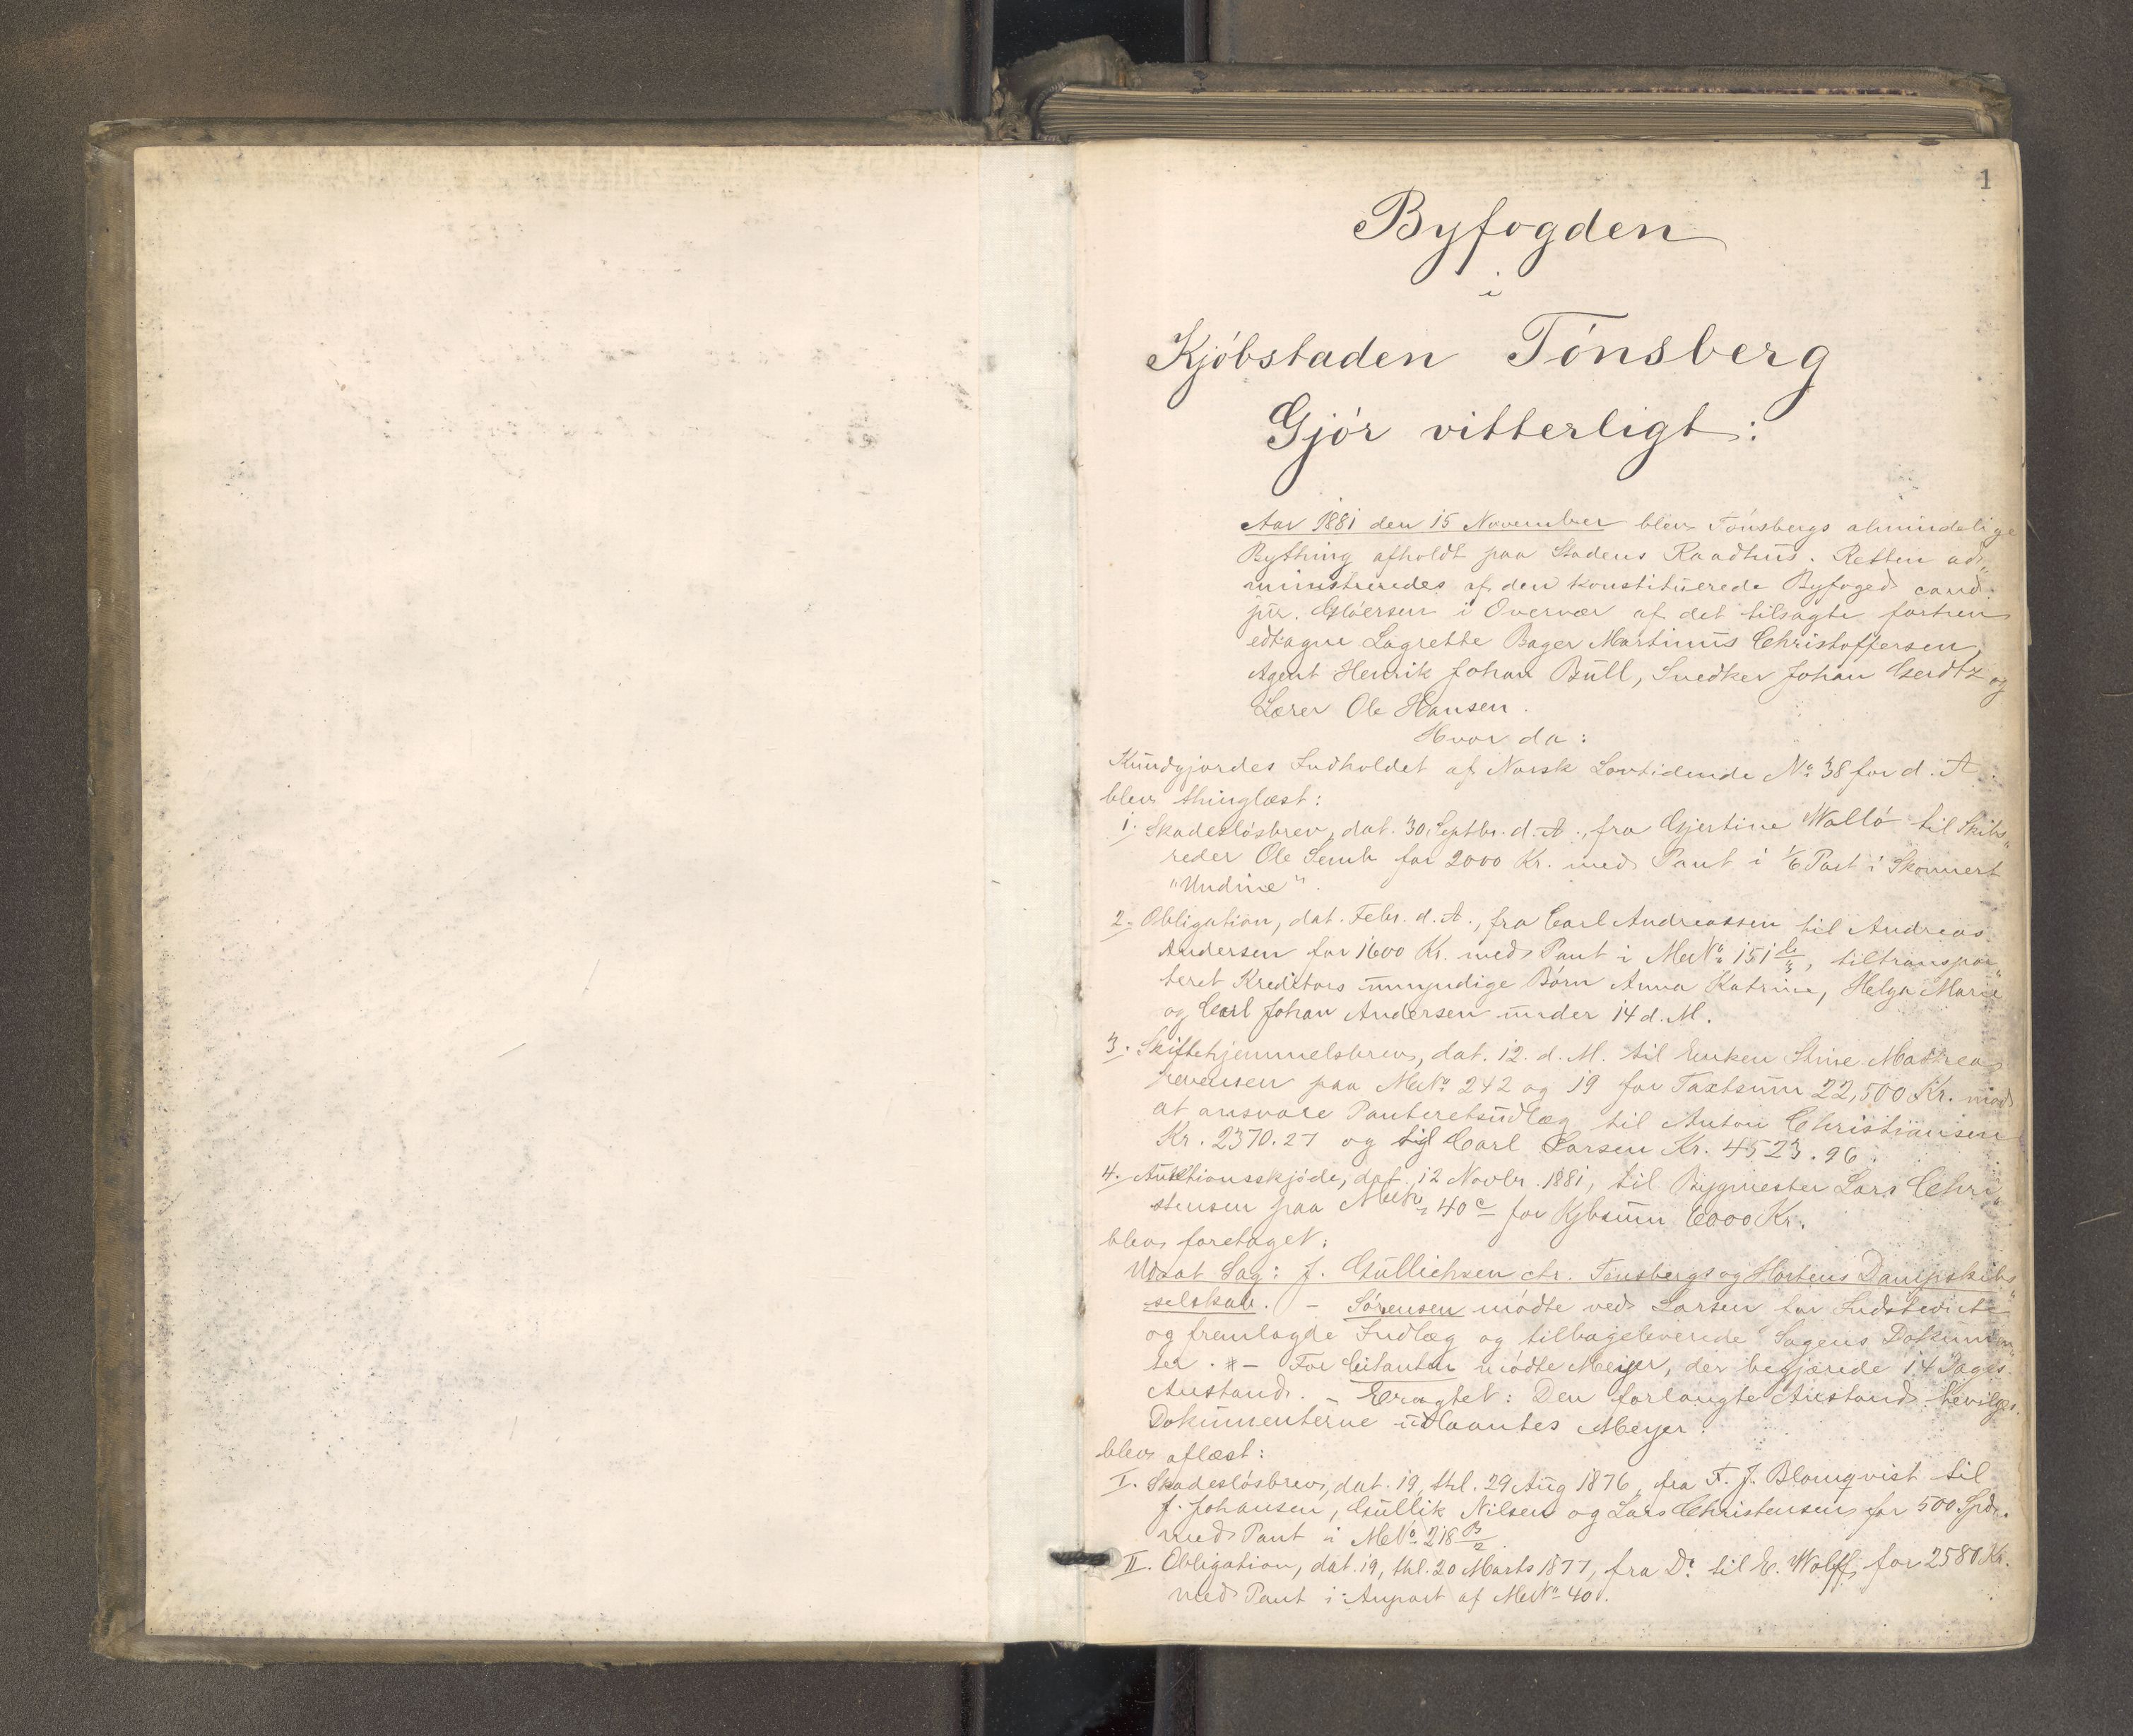 1
Byfogden
i
Kjóbstaden Tónsberg
Gjór vitterligt:
Aar 1881 den 15 November blev Tónsbergs almindelige
Bything afholdt paa Stadens Raadhus. Retten ad„
ministreredes af den konstituerede Byfoged cand.
jur. Glóersen i Overvær af det tilsagte
edtagne Lagrette Bager Martinus Christoffersen,
Agent Henrik Johan Bull, Snedker Johan Gerdtz og
Lærer Ole Hansen.
Hvor da:
Kundgjordes Indholdet af Norsk Lovtidende No 38 for d. A.
blev thinglæst:
1. Skadeslósbrev, dat. 30 Septbr. d. A., fra Gjertine Walló til Skibs„
reder Ole Semb for 2000 Kr. med Pant i 1/6 Part i Skonnert
"Undine".
2. Obligation, dat. Febr. d. A., fra Carl Andreassen til Andreas
Andersen for 1600 Kr. med Pant i MatNo 151 b/3, tiltranspor„
teret Kreditors umyndige Bórn Anna Katrine, Helga Marie
og Carl Johan Andersen under 14 d. M.
3. Skiftehjemmelsbrev, dat. 12. d. M. til Enken Stine Mathea
paa MatNo 242 og 19 for Taxtsum 22,500 Kr. mod
at ansvare Panteretsudlæg til Anton Christiansen
Kr. 2370.27 og til Carl Larsen Kr. 4523.96.
4. Auktionsskjóde, dat. 12 Novbr. 1881, til Bygmester Lars Chri„
stensen paa MatNo 40 c for Kjbsum 6000 Kr.
blev foretaget:
Udsat Sag: J. Gullichsen ctr. Tónsbergs og Hortens Dampskibs„
selskab. - Sórensen módte ved Larsen for Indstevnte
og fremlagde Indlæg og tilbageleverede Sagens Dokumen„
ter. # - For Citanten módte Meyer, der begjærede 14 Dages
Anstand. - Eragtet: Den forlangte Anstand bevilges.
Dokumenterne udlaantes Meyer.
blev aflæst:
I. Skadeslósbrev, dat. 19, thl. 29 Aug 1876, fra F. J. Blomqvist til
J. Johansen, Gullik Nilsen og Lars Christensen for 500 Spd.
med Pant i MatNo 218 B/2.
II. Obligation, dat. 19, thl. 20 Marts 1877, fra Do til E. Wolff for 2580 Kr.
med Pant i Anpart af MatNo 40.